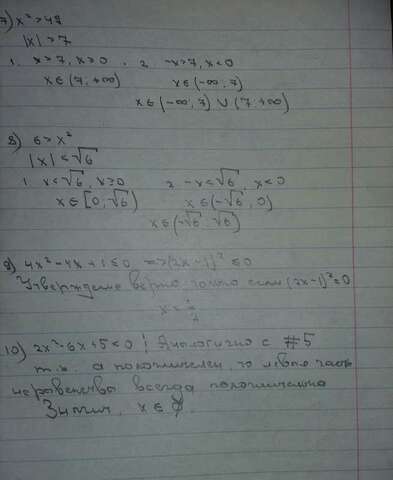 7) x² > 49
|x| > 7
1. x > 7, x > 0 . 2. -x > 7, x < 0
x ∈ (7; +∞) x ∈ (-∞, 7)
x ∈ (-∞, 7) ∪ (7; +∞)
8) 6 > x²
|x| < √6
1 x < √6, x ≥ 0 2 -x < √6, x < 0
x ∈ [0, √6) x ∈ (-√6, 0)
x ∈ (-√6 √6)
9) 4x² - 4x + 1 ≤ 0 => (2x - 1)² ≤ 0
Утверждение верно только если (2x - 1)² = 0
x =
10) 2x² - 6x + 5 < 0 ! Аналогично с #5
т.к. a положителен, то левая часть
неравенства всегда положительна
Значит, x ∈ ∅.